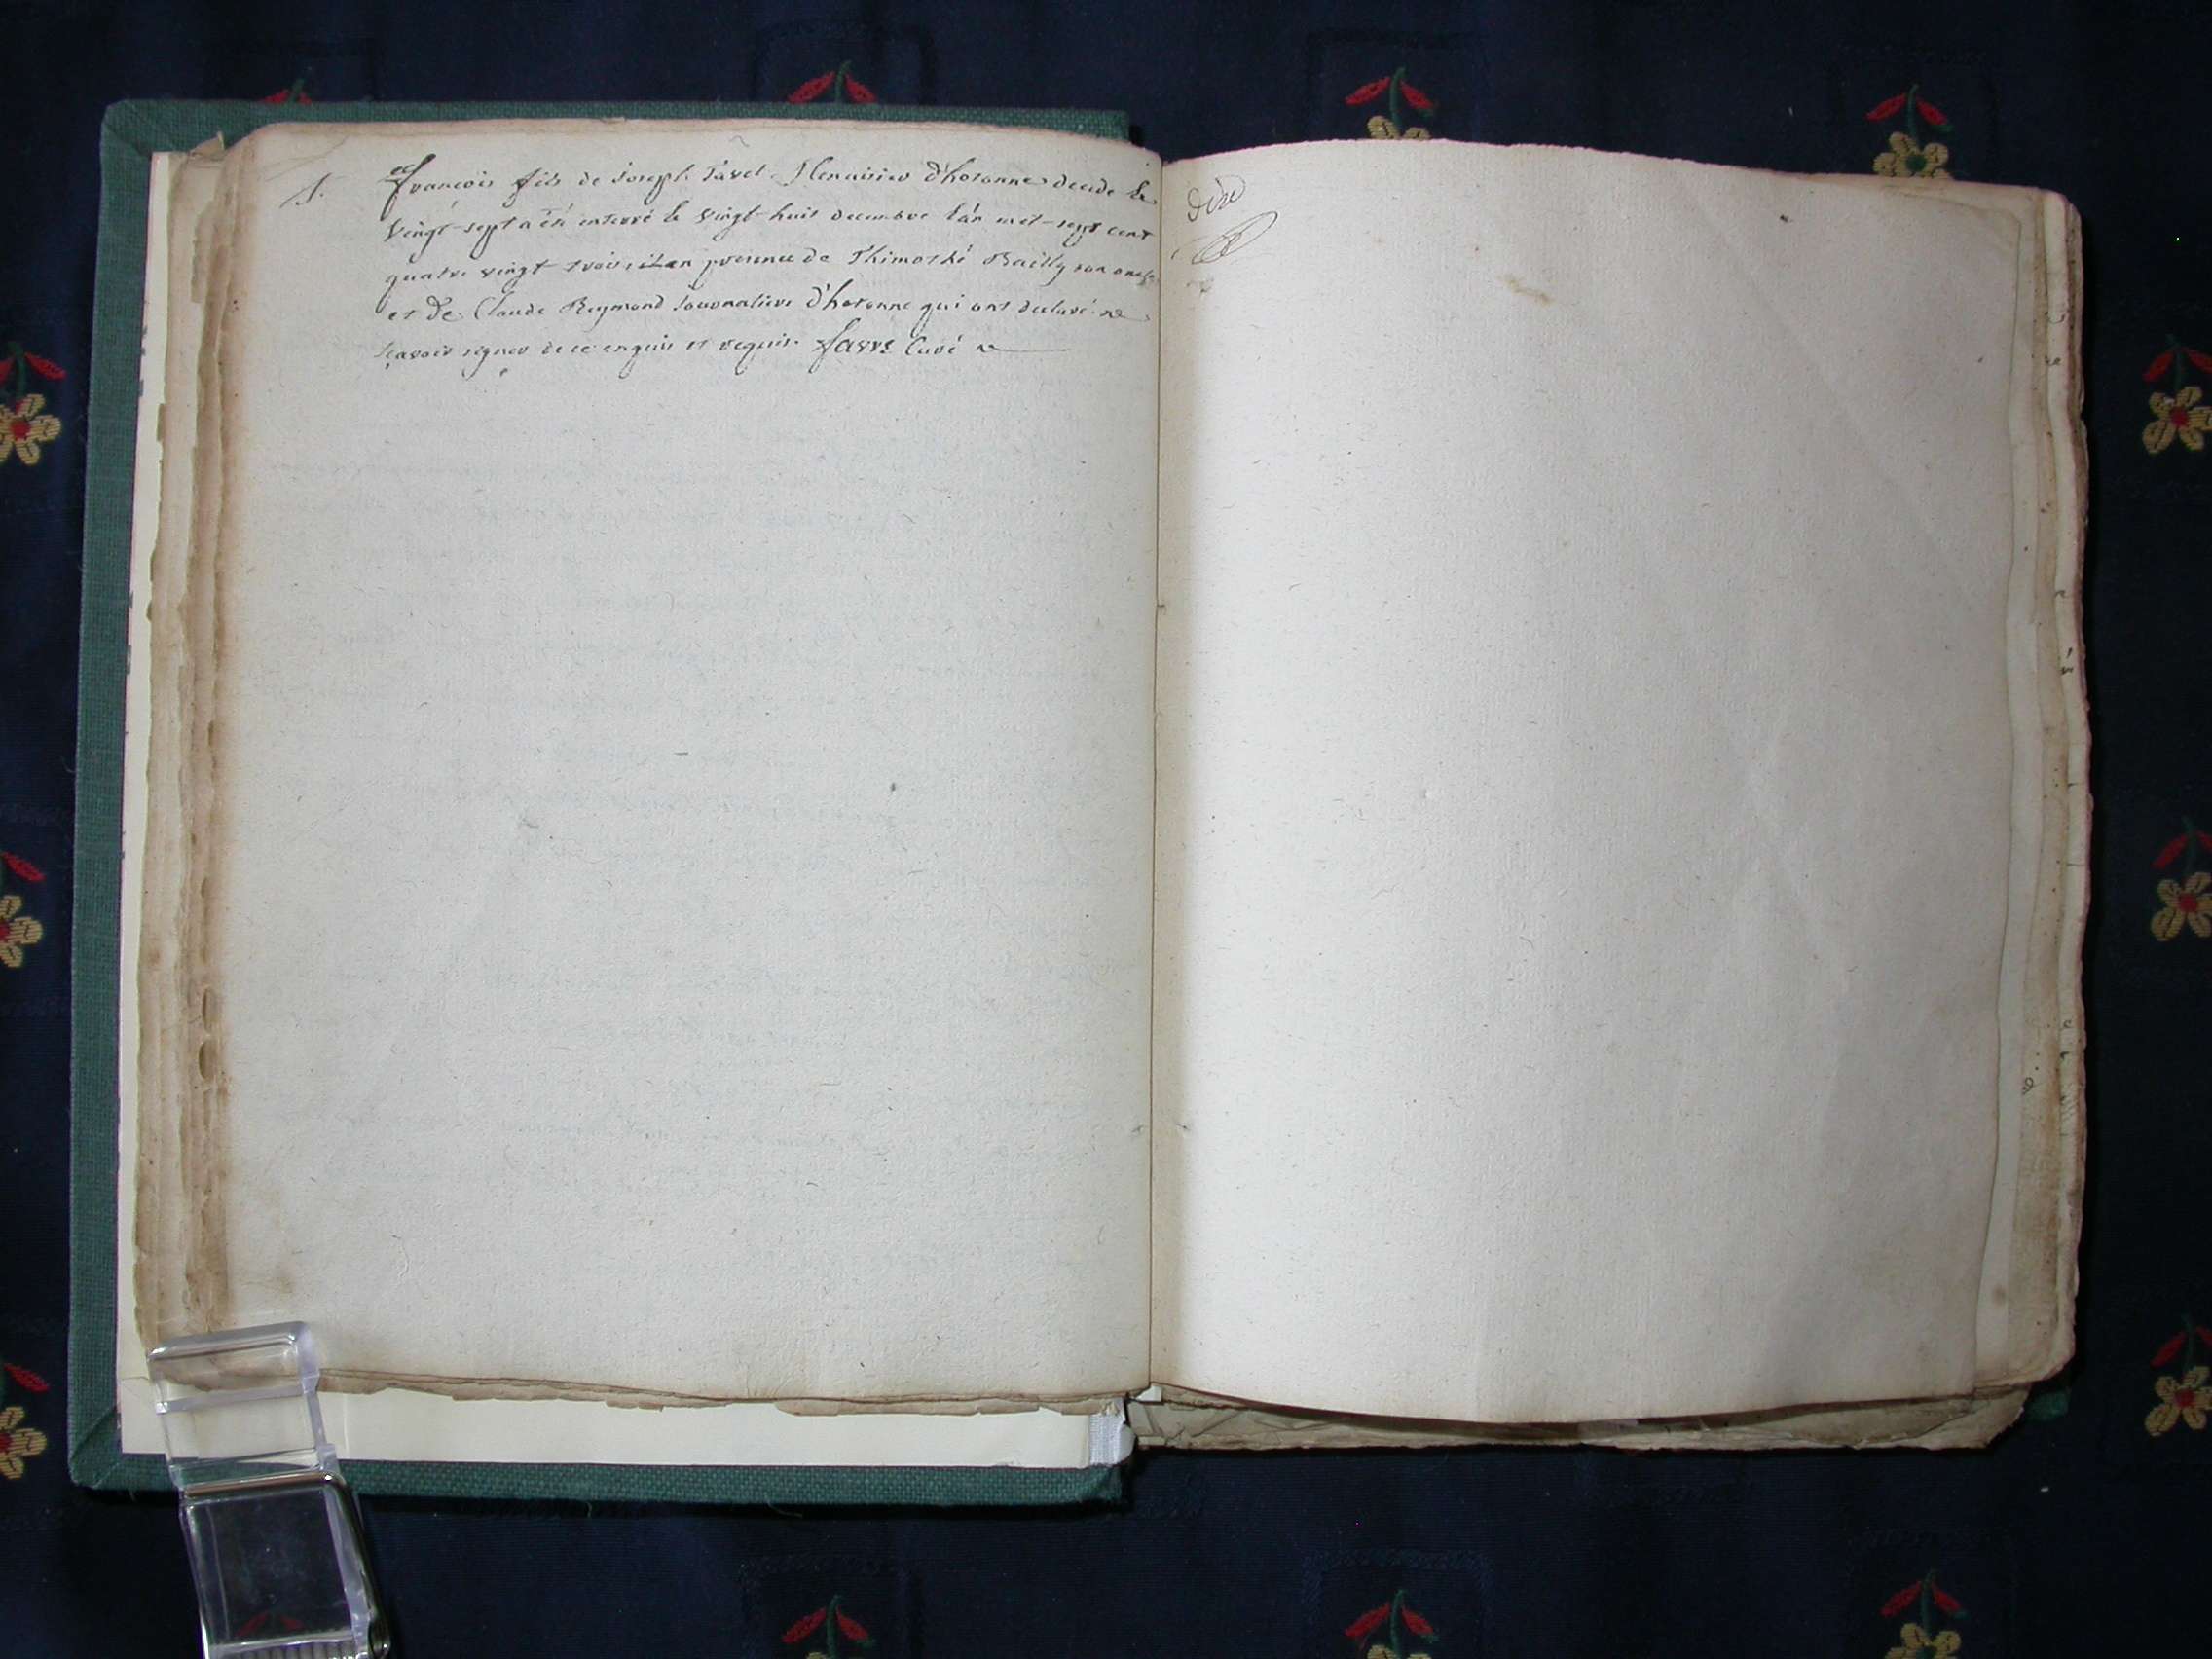 S.
françois fils de Joseph Tavel Menuisier d'hotonne decede le
vingt-sept a été enterré le vingt-huit decembre l'an mil-sept cent
quatre vingt trois, en presence de Thimothé Bailly son oncle
et de Claude Reymond Journaliere d'hotonne qui ont declaré ne
sçavoir signer de ce enquis et requis. favre Curé
dixe